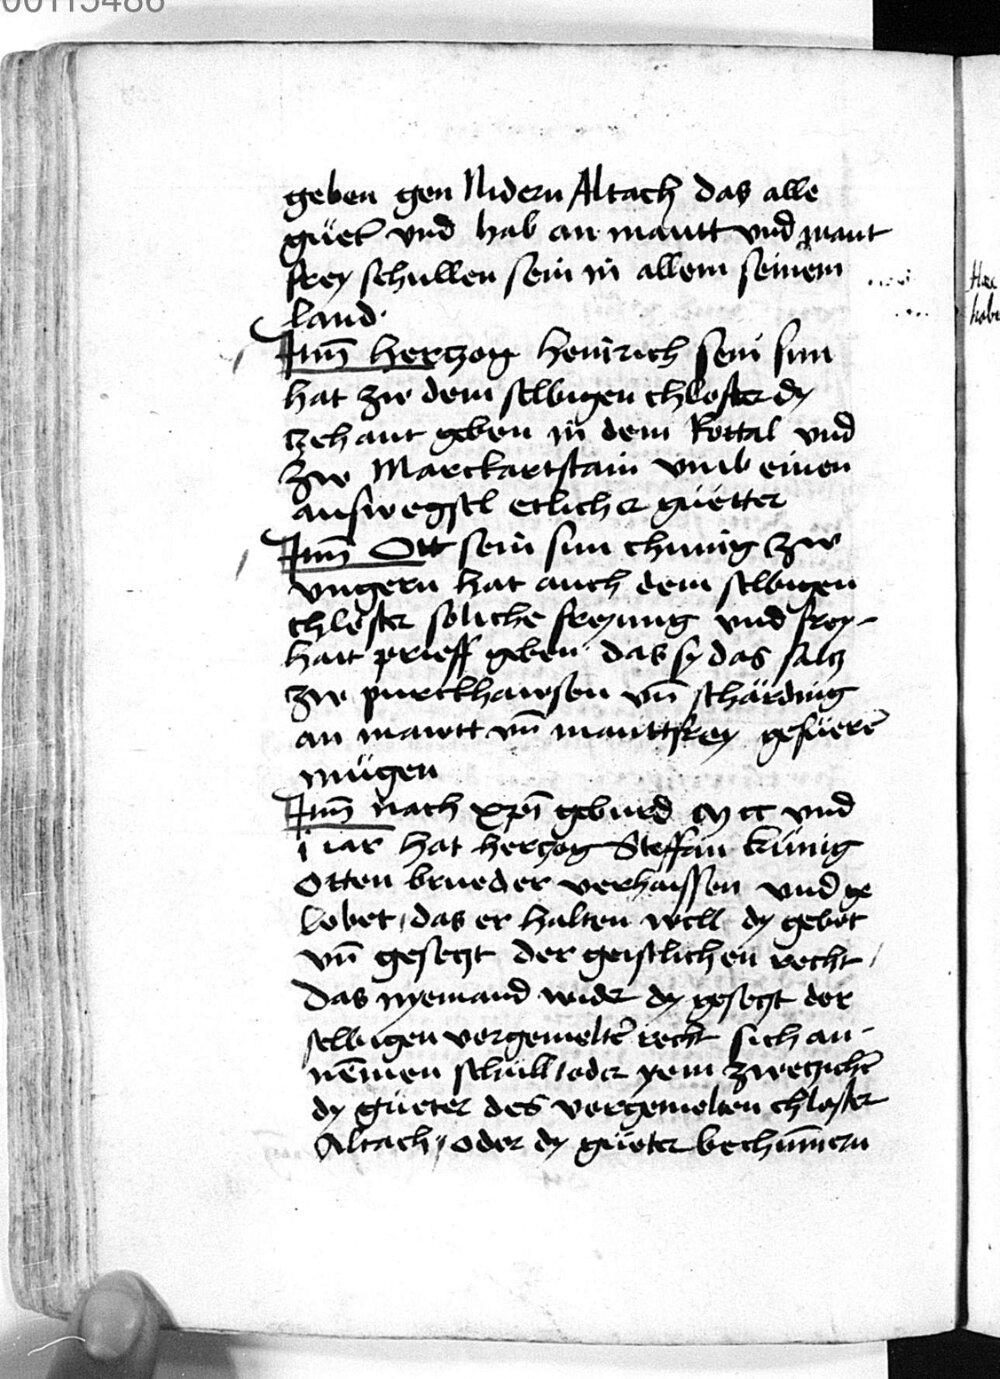 00115486
geben gen Nidern Altach das alle
güet̄ vnd hab an mautt vnd maut
frey schullen sein in allem seinem
land.
Itm̄ hertzog heinrich sein sun
hat zw dem selbigen chloster dy
zehant geben in dem Rottal vnd
zw Marckartstain vmb einen
auswegsel etlicher güetter
Itm̄ Ott sein sun chunig zw
vngern hat auch dem selbigen
chloster soliche freyung vnd frey-
hait prieff geben das sy das saltz
zw purckhawsen vn̄ schärding
an mawtt vn̄ mauttfrey gefüern̄
mügen
Itm̄ nach xp̄i geburd M cc vnd
jar hat hertzog Steffan künig
Otten brueder verhaissen vnd ge
lobet, das er halten well dy gebot
vn̄ gesetzt der geistlichen recht /
Das nyemand wider dy gesetzt der
selbigen vorgemelte̅ recht sich an-
nēmen schull / oder yem zwetziche̅
dy güeter des vorgemelten chloster
Altach / oder dy güeter bechūmern